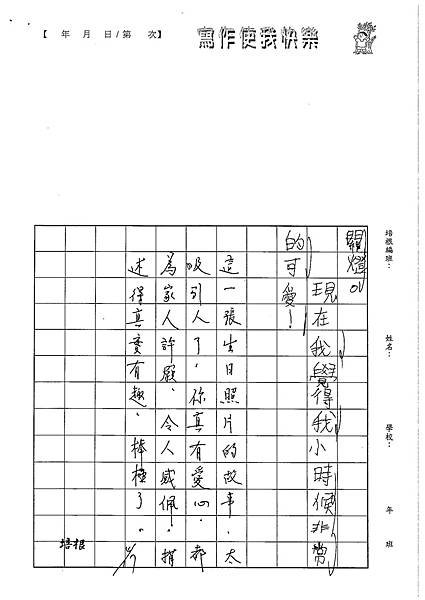 【 年 月 日/第 次】
寫作使我快樂
培根編班：
姓名：
學校：
年 班
關燈。
現在我覺得我小時候非常
的可愛！
這一張生日照片的故事，太
吸引人了，你真有愛心，都
為家人許願，令人感佩！描
述得真實有趣，棒極了。
培根